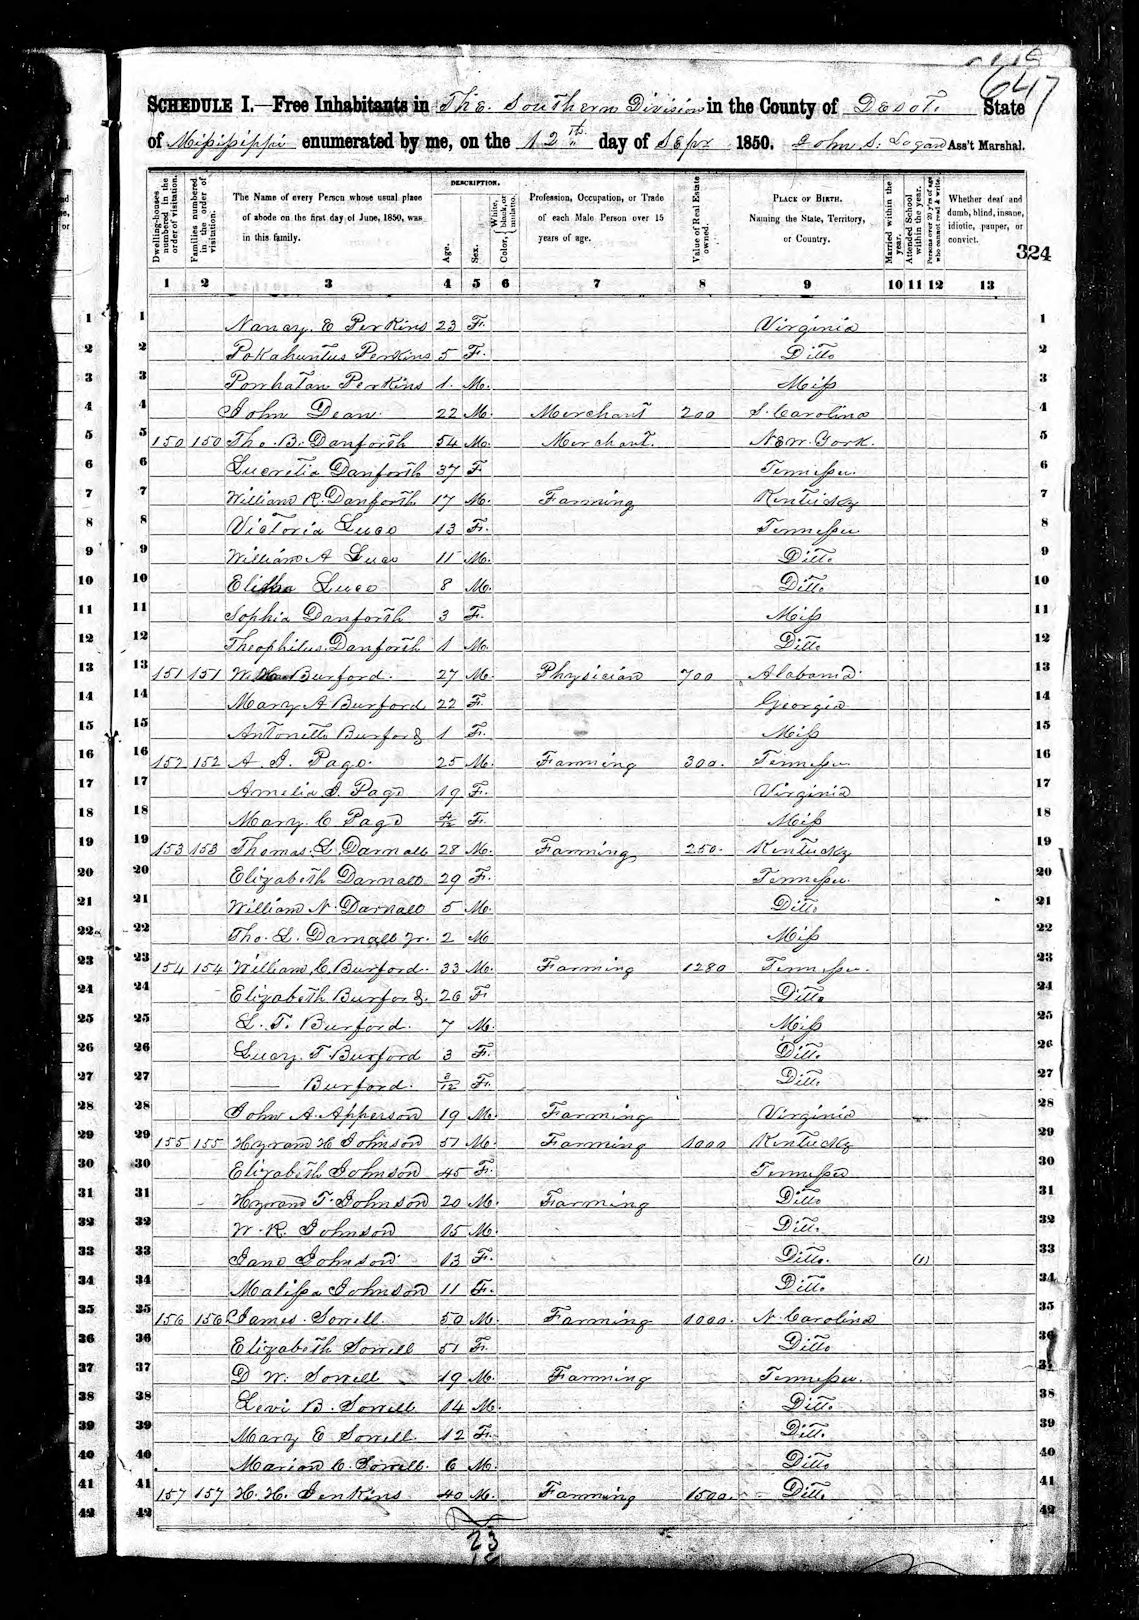 647
SCHEDULE I.—Free Inhabitants in The Southern Division in the County of Desoto State
of Missisippi enumerated by me, on the 12th day of Sepr 1850. John S. Logan Ass't Marshal.
Dwelling-houses numbered in the order of visitation. Families numbered in the order of visitation. The Name of every Person whose usual place of abode on the first day of June, 1850, was in this family. DESCRIPTION. Age. Sex. Color, White, black, or mulatto. Profession, Occupation, or Trade of each Male Person over 15 years of age. Value of Real Estate owned. PLACE OF BIRTH. Naming the State, Territory, or Country. Married within the year. Attended School within the year. Persons over 20 y'rs of age who cannot read & write. Whether deaf and dumb, blind, insane, idiotic, pauper, or convict.
324
1 2 3 4 5 6 7 8 9 10 11 12 13
1 1 Nancy E Perkins 23 F. Virginia 1
2 2 Pokahuntus Perkins 5 F. Ditto 2
3 3 Powhatan Perkins 1 M. Miss 3
4 4 John Dean 22 M. Merchant 200 S. Carolina 4
5 5 150 150 Tho. B. Danforth 54 M. Merchant. New York. 5
6 6 Lucretia Danforth 37 F. Tennessee 6
7 7 William R. Danforth 17 M. Farming Kentucky 7
8 8 Victoria Luce 13 F. Tennessee 8
9 9 William A Luce 11 M. Ditto 9
10 10 Elisha Luce 8 M. Ditto 10
11 11 Sophia Danforth 3 F. Miss 11
12 12 Theophilus Danforth 1 M. Ditto 12
13 13 151 151 W. Burford. 27 M. Physician 700 Alabama 13
14 14 Mary A Burford 22 F. Georgia 14
15 15 Antonette Burford 1 F. Miss 15
16 16 152 152 A. J. Page. 25 M. Farming 300. Tennessee 16
17 17 Amelia J. Page 19 F. Virginia 17
18 18 Mary C Page F. Miss 18
19 19 153 153 Thomas L. Darnall 28 M. Farming 250. Kentucky 19
20 20 Elizabeth Darnall 29 F. Tennessee. 20
21 21 William N. Darnall 5 M. Ditto 21
22 22 Tho. L. Darnall Jr. 2 M Miss 22
23 23 154 154 William C. Burford. 33 M. Farming 1280 Tennessee. 23
24 24 Elizabeth Burford. 26 F. Ditto 24
25 25 L. T. Burford. 7 M. Miss 25
26 26 Lucy. T Burford 3 F. Ditto 26
27 27 —— Burford. F. Ditto 27
28 28 John A. Apperson 19 M. Farming Virginia 28
29 29 155 155 Hyram H Johnson 51 M. Farming 1000 Kentucky 29
30 30 Elizabeth Johnson 45 F. Tennessee 30
31 31 Hyram T. Johnson 20 M. Farming Ditto 31
32 32 W. R. Johnson 15 M. Ditto 32
33 33 Jane Johnson 13 F. Ditto. (1) 33
34 34 Malissa Johnson 11 F. Ditto 34
35 35 156 156 James Sorrell 50 M. Farming 1000. N. Carolina 35
36 36 Elizabeth Sorrell 51 F. Ditto 36
37 37 D W. Sorrell 19 M. Farming Tennessee. 37
38 38 Levi B. Sorrell 14 M. Ditto 38
39 39 Mary E Sorrell 12 F. Ditto 39
40 40 Marion C. Sorrell. 6 M. Ditto 40
41 41 157 157 H. H. Jenkins 40 M. Farming 1500. Ditto 41
42 42 42
23